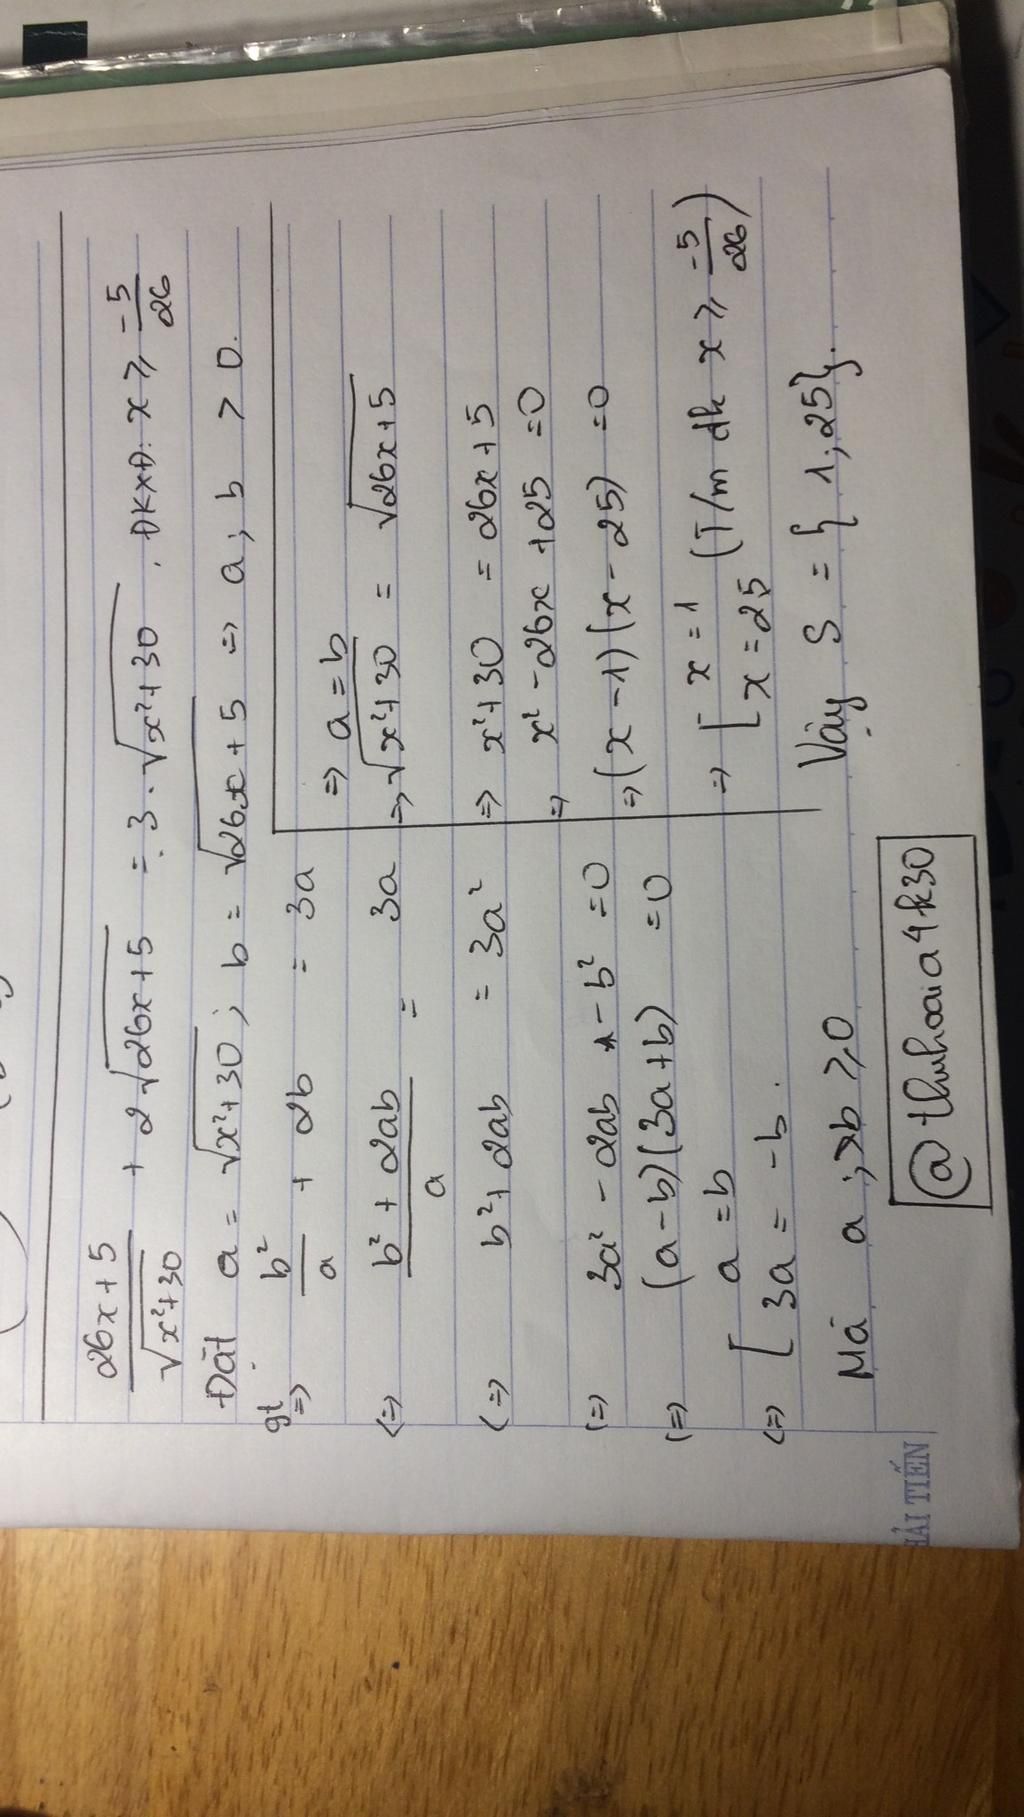 26x+5/√x²+30 + 2√26x+5 = 3.√x²+30 . ĐKXĐ: x ≥ -5/26
Đặt a = √x²+30 ; b = √26x+5 => a ; b > 0.
gt => b²/a + 2b = 3a
<=> b² + 2ab/a = 3a
<=> b² + 2ab = 3a²
<=> 3a² - 2ab - b² = 0
<=> (a-b)(3a+b) = 0
<=> [ a = b
3a = -b .
Mà a ; b ≥ 0
=> a = b
=> √x²+30 = √26x+5
=> x²+30 = 26x+5
=> x² - 26x + 25 = 0
=> (x-1)(x-25) = 0
=> [ x = 1
x = 25 (T/m đk x ≥ -5/26)
Vậy S = { 1 ; 25}.
@thuhoaia4k30
HẢI TIẾN